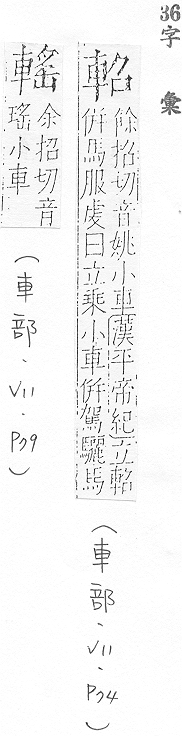 36字彙
軺 餘招切音姚小車漢平帝紀立軺
併馬服虔曰立乘小車併駕驪馬
(車部.V11.P74)
䡛 余招切音
瑤小車
(車部.V11.P79)